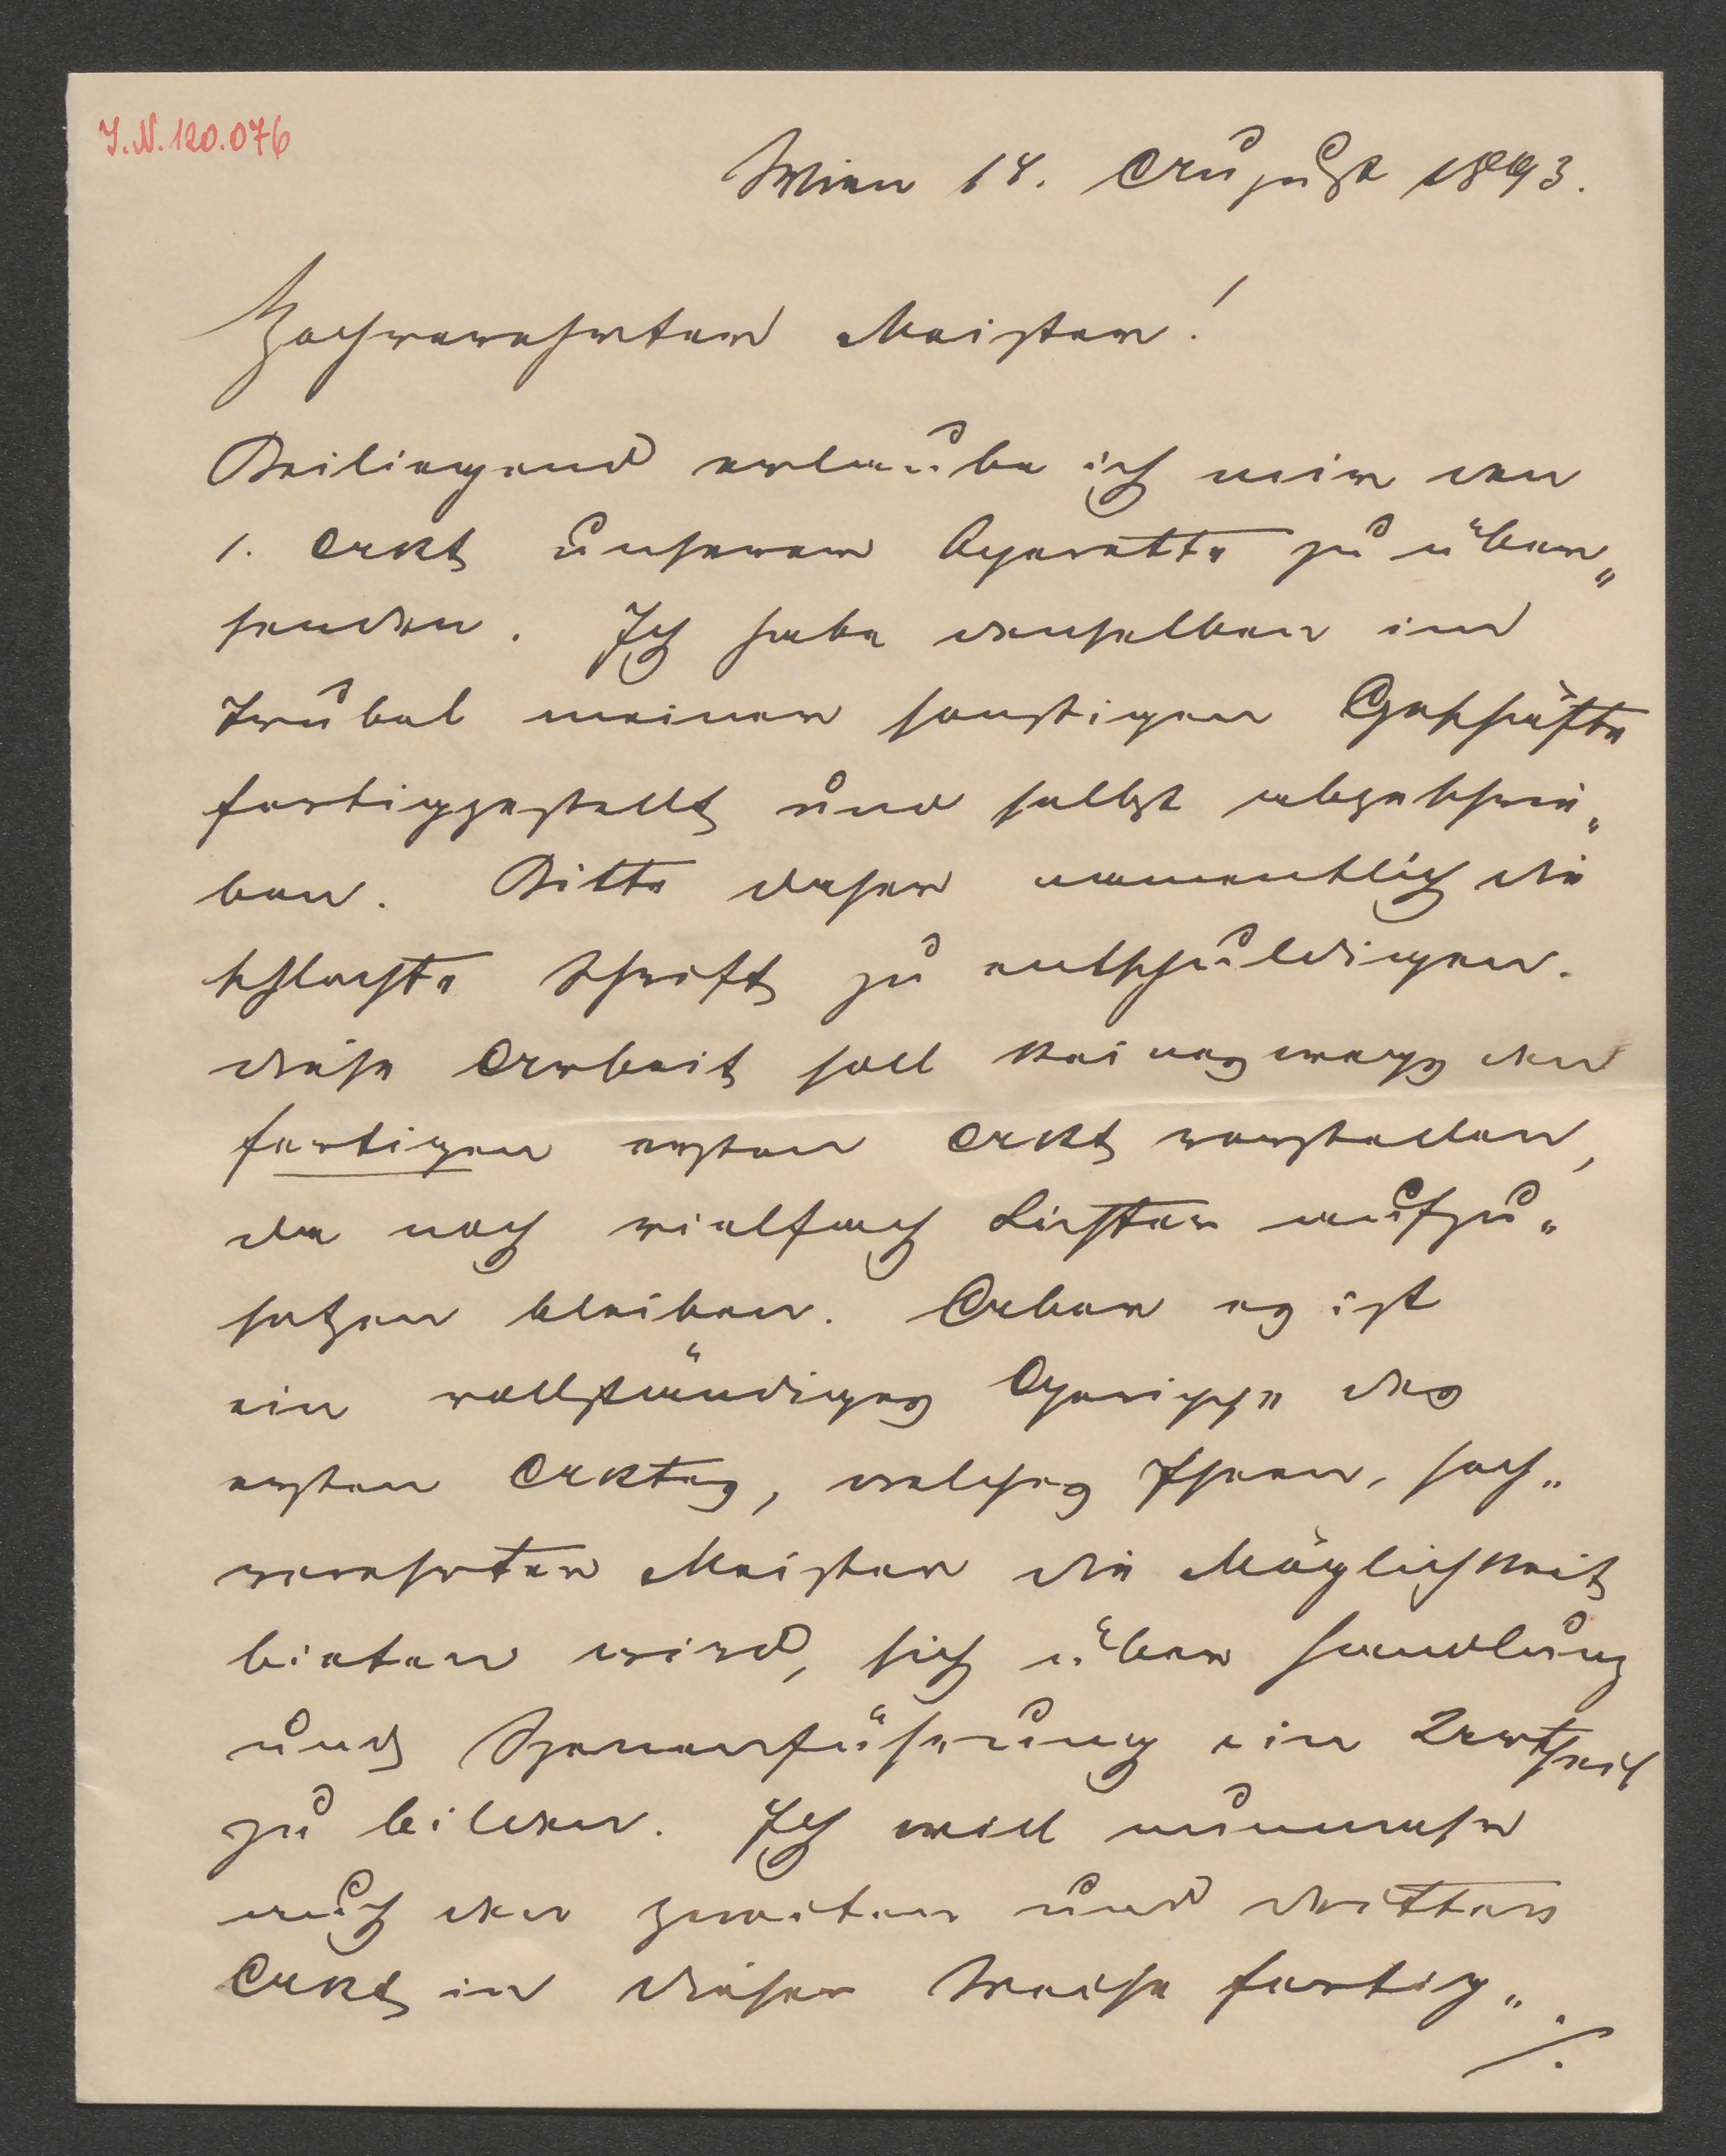 I.N. 120.076
Wien 14. August 1893.
Hochverehrter Meister!
Beiliegend erlaube ich mir den
1. Akt unserer Operette zu über„
senden. Ich habe denselben im
Trubel meiner sonstigen Geschäfte
fertiggestellt und selbst abgeschrie„
ben. Bitte daher namentlich die
schlechte Schrift zu entschuldigen.
Diese Arbeit soll keineswegs den
fertigen ersten Akt vorstellen,
da noch vielfach Lichter aufzu„
setzen bleiben. Aber es ist
ein vollständiges Gerippe des
ersten Aktes, welches Ihnen, hoch„
verehrter Meister die Möglichkeit
bieten wird, sich über Handlung
und Szenenführung ein Urtheil
zu bilden. Ich will nunmehr
auch den zweiten und dritten
Akt in dieser Weise fertig„
./.